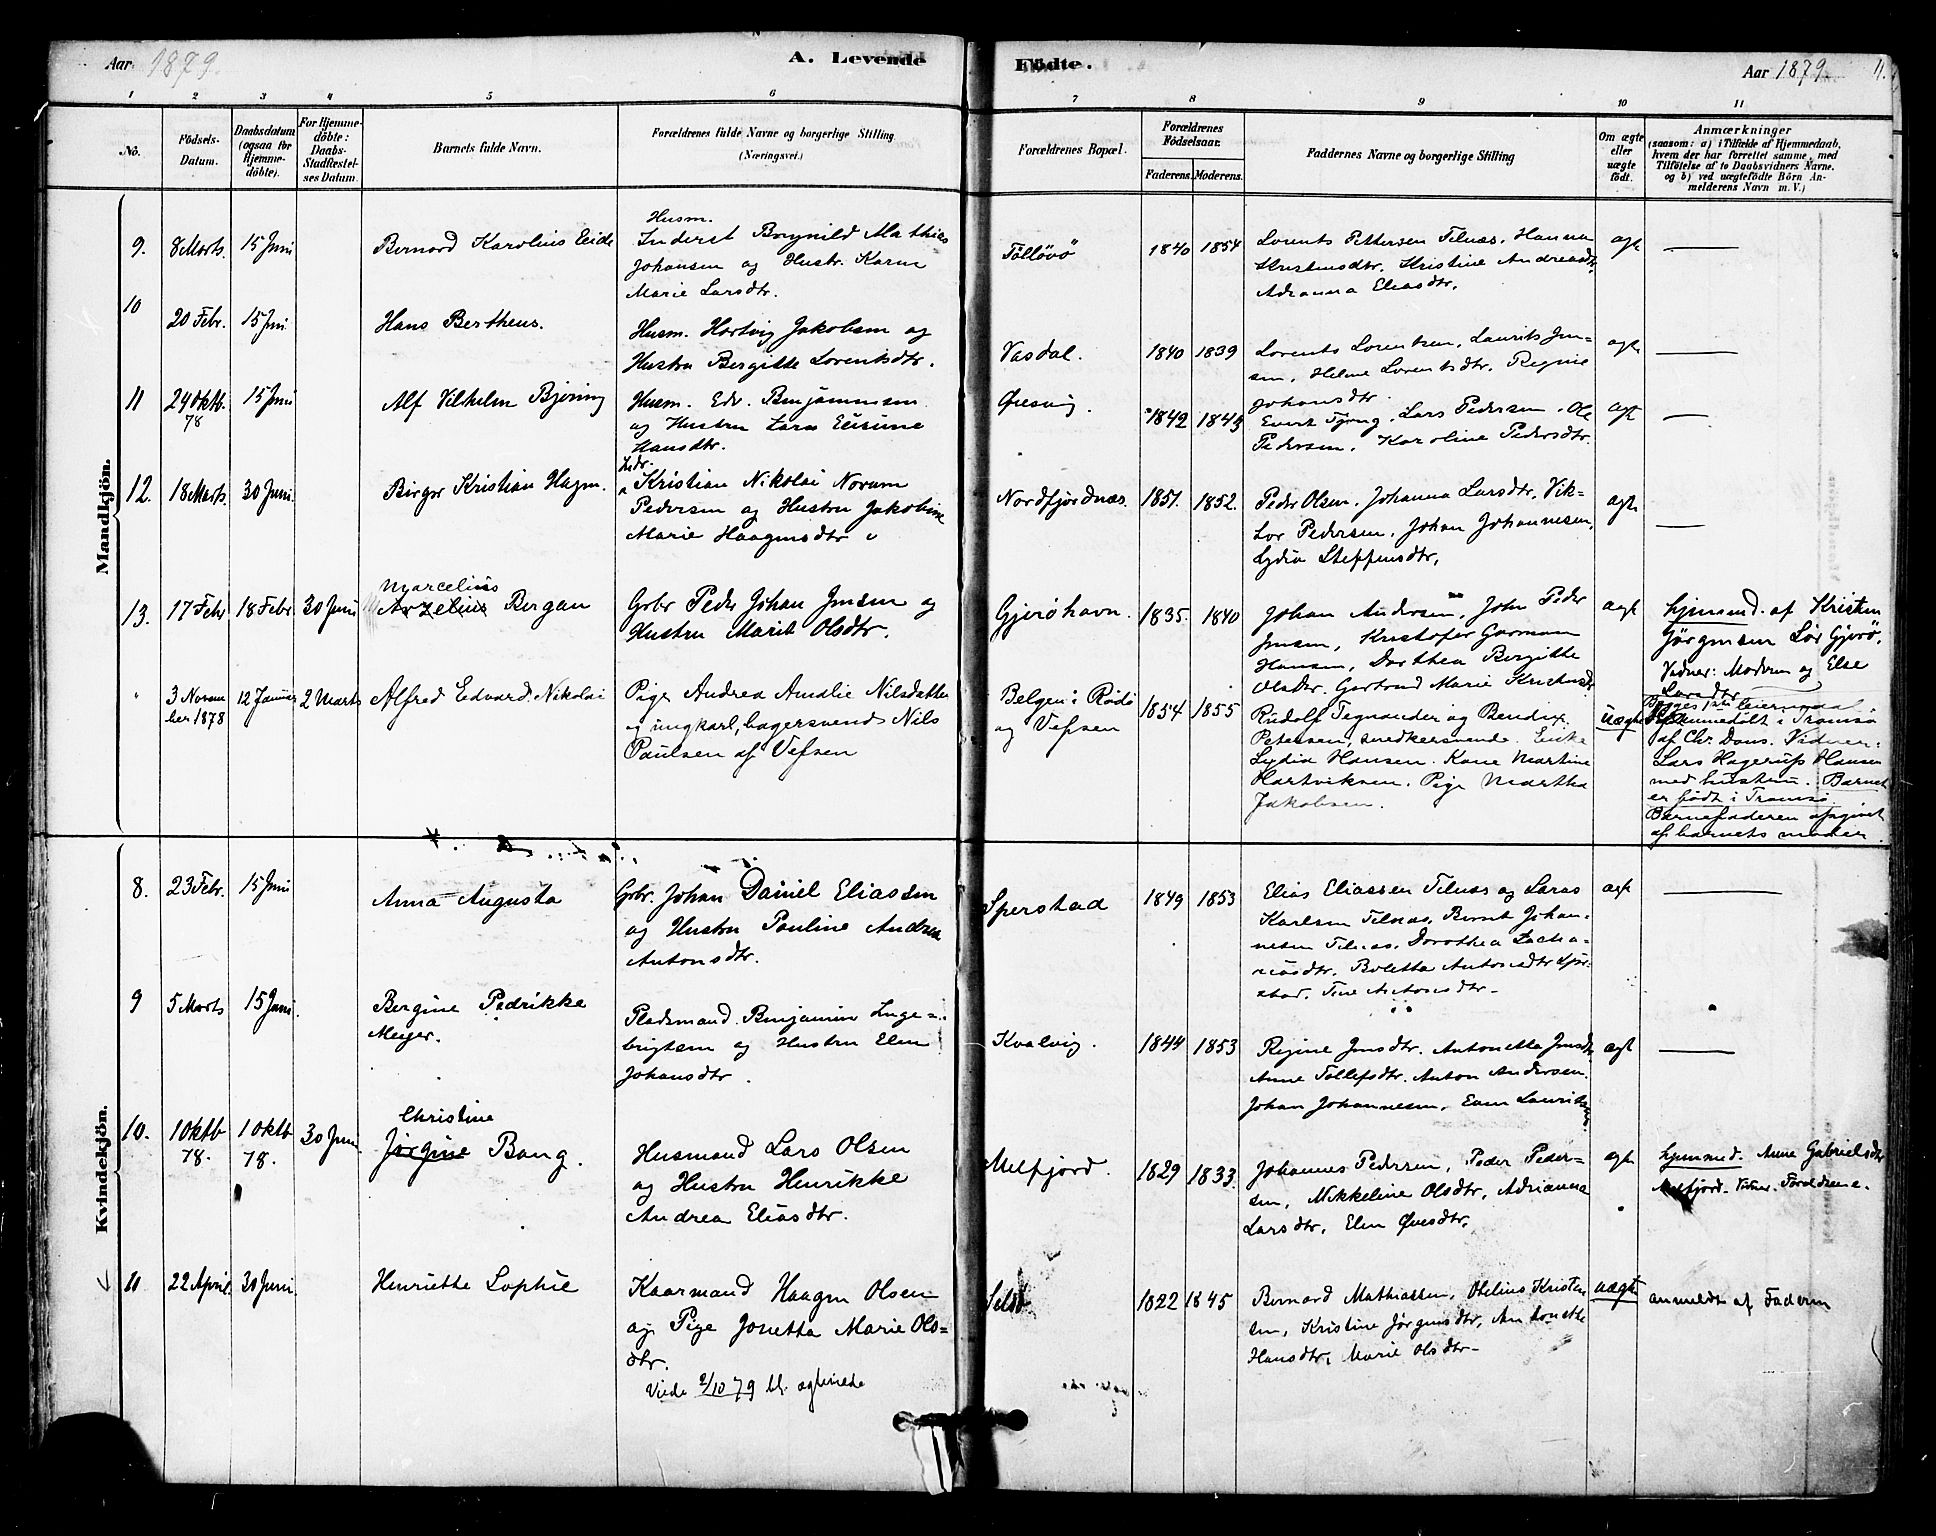 Aar 1879.
A. Levende Födte.
Aar 1879. 11.
1 2 3 4 5 6 7 8 9 10 11
No.
Födsels-
Datum.
Daabsdatum
(ogsaa for
Hjemme-
döbte).
For Hjemme-
döbte:
Daabs-
Stadfæstel-
ses Datum.
Barnets fulde Navn.
Forældrenes fulde Navne og borgerlige Stilling
(Næringsvei.)
Forældrenes Bopæl.
Forældrenes
Födselsaar.
Faderens. Moderens.
Faddernes Navne og borgerlige Stilling
Om ægte
eller
uægte
födt.
Anmærkninger
(saasom: a) i Tilfælde af Hjemmedaab,
hvem der har forrettet samme, med
Tilföielse af to Daabsvidners Navne.
og b) ved uægtefödte Börn An-
melderens Navn m. V.)
Mandkjön.
9. 8 Marts. 15 Juni
Bernard Karolius Eide
Husm.
Inderst Brynild Mathias
Johansen og Hustr. Karen
Marie Larsdtr.
Tölløvø
1840 1854
Lorents Pettersen Telnæs, Hanna
Kristensdtr. Kristine Andreasdtr.
Adrianna Eliasdtr.
agte
10 20 Febr. 15 Juni
Hans Bertheus.
Husm. Hartvig Jakobsen og
Hustru Bergitte Lorentsdtr.
Vasdal.
1840 1839
Lorents Lorentsen, Laurits Jen-
sen, Helene Lorentsdtr. Regine
Johansdtr.
agte
11 24 Oktb. 78 15 Juni
Alf Vilhelm Björing
Husm. Edv. Benjaminsen
og Hustru Lara Elisine
Hansdtr.
Øresvig.
1842 1843
Lars Pedersen. Ole
Pedersen, Karoline Pedersdtr
agte
12. 18 Marts. 30 Juni
Birger Kristian Hagen.
Indr.
Kristian Nikolai Norum
Pedersen og Hustru Jakobine
Marie Haagensdtr
Nordfjordnæs.
1851. 1852.
Peder Olsen. Johanna Larsdtr. Vik-
tor Pedersen. Johan Johannesen,
Lydia Steffensdtr.
agte
13. 17 Febr 18 Febr 30 Juni
Marcelius
Arzelius Bergan
Grbr Peder Johan Jensen og
Hustru Marit Olsdtr.
Gjerøhavn.
1835. 1840
Johan Andersen, John Peder
Jensen, Kristofer Garmann
Hansen, Dorthea Bergitte
Olsdtr. Gertrud Marie Kristensdtr
agte
hjemmed. af Kristen
Jørgensen Sør Gjerø.
Vidner: Moderen og Else
Larsdtr
" 3 Novem
ber 1878 12 Januar 2 Marts
Alfred Edvard Nikolai
Pige Andrea Amalie Nilsdatter
og ungkarl, bagersvend Nils
Paulsen af Vefsen
Belgen i Rödö
og Vefsen
1854 1855
Rudolf Tegnander og Bendix
Petersen, snedkersvende. Enke
Lydia Hansen. Kone Martine
Hartviksen. Pige Martha
Jakobsen.
uægte
Begges 1ste leiermaal
Hjemmedøbt i Tromsø
af Chr. Dons. Vidner:
Lars Hagerup Hansen
med hustru. Barnet
er født i Tromsø.
Barnefaderen opgivet
af barnets moder.
Kvindekjön.
8. 23 Febr. 15 Juni
Anna Augusta
Grbr. Johan Daniel Eliassen
og Hustru Pauline Andrea
Antonsdtr.
Sperstad
1849 1853
Elias Eliassen Telnæs og Laras
Karlsen Telnæs, Bernt Johan-
nesen Telnæs. Dorothea Zacha-
riasdtr. Boletta Antonsdtr Sper-
stad. Tine Antonsdtr.
agt
9 5 Marts 15 Juni.
Bergine Pedrikke
Meyer.
Pladsmand. Benjamin Inge-
brigtsen og Hustru Elen
Johansdtr.
Kvalvig.
1844 1853
Regine Jensdtr. Antonetta Jensdtr
Anne Tollefsdtr. Anton Andersen.
Johan Johannesen, Even Lauritsen
ægt
10. 1 Oktb 78. 1 Oktb 78. 30 Juni
Christine
Jørgine Bang.
Husmand Lars Olsen
og Hustru Henrikke
Andrea Eliasdtr.
Melfjord.
1829 1833.
Johannes Pedersen, Peder Peder-
sen, Nikkeline Olsdtr, Adrianna
Larsdtr, Elen Øvesdtr.
agte
hjemmed. Anne Gabrielsdtr
Melfjord. Vidner. Forældrene.
11 22 April. 30 Juni.
Henriette Sophie
Kaarmand Haagen Olsen
og Pige Jonetta Marie Ols-
dtr.
Viede 2/10 79 bl. ægteviede
Selsø
1822 1845
Bernard Mathiassen, Otelius Kristen
sen, Kristine Jørgensdtr, Antonette
Hansdtr, Marie Olsdtr.
uægte
anmeldt af Faderen